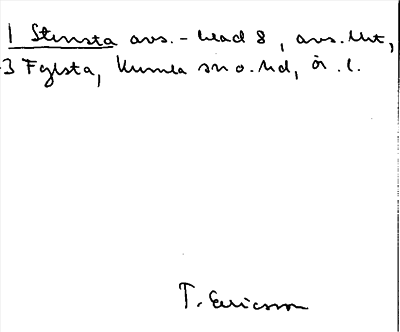 1 Stensta avs. - blad 8, avs. txt,
3 Fylsta, Kumla sn o. hd, ör. l.
T. Ericsson